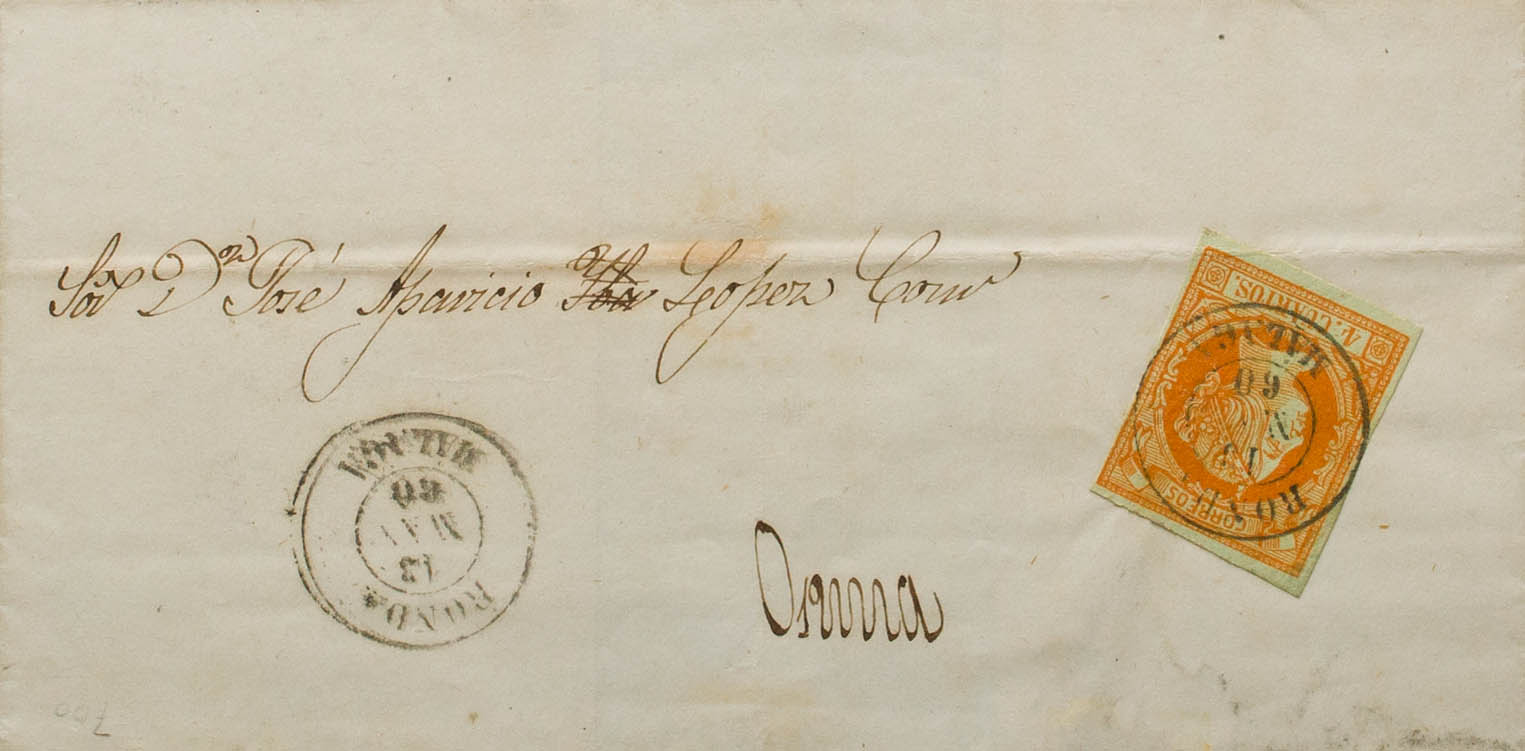 Sor Dn José Aparicio Lopez Coru
4 Cs. CUARTOS.
CORREOS
RONDA
13
MAY
60
MALAGA
RONDA
13
60
MALAGA
Osuna
700